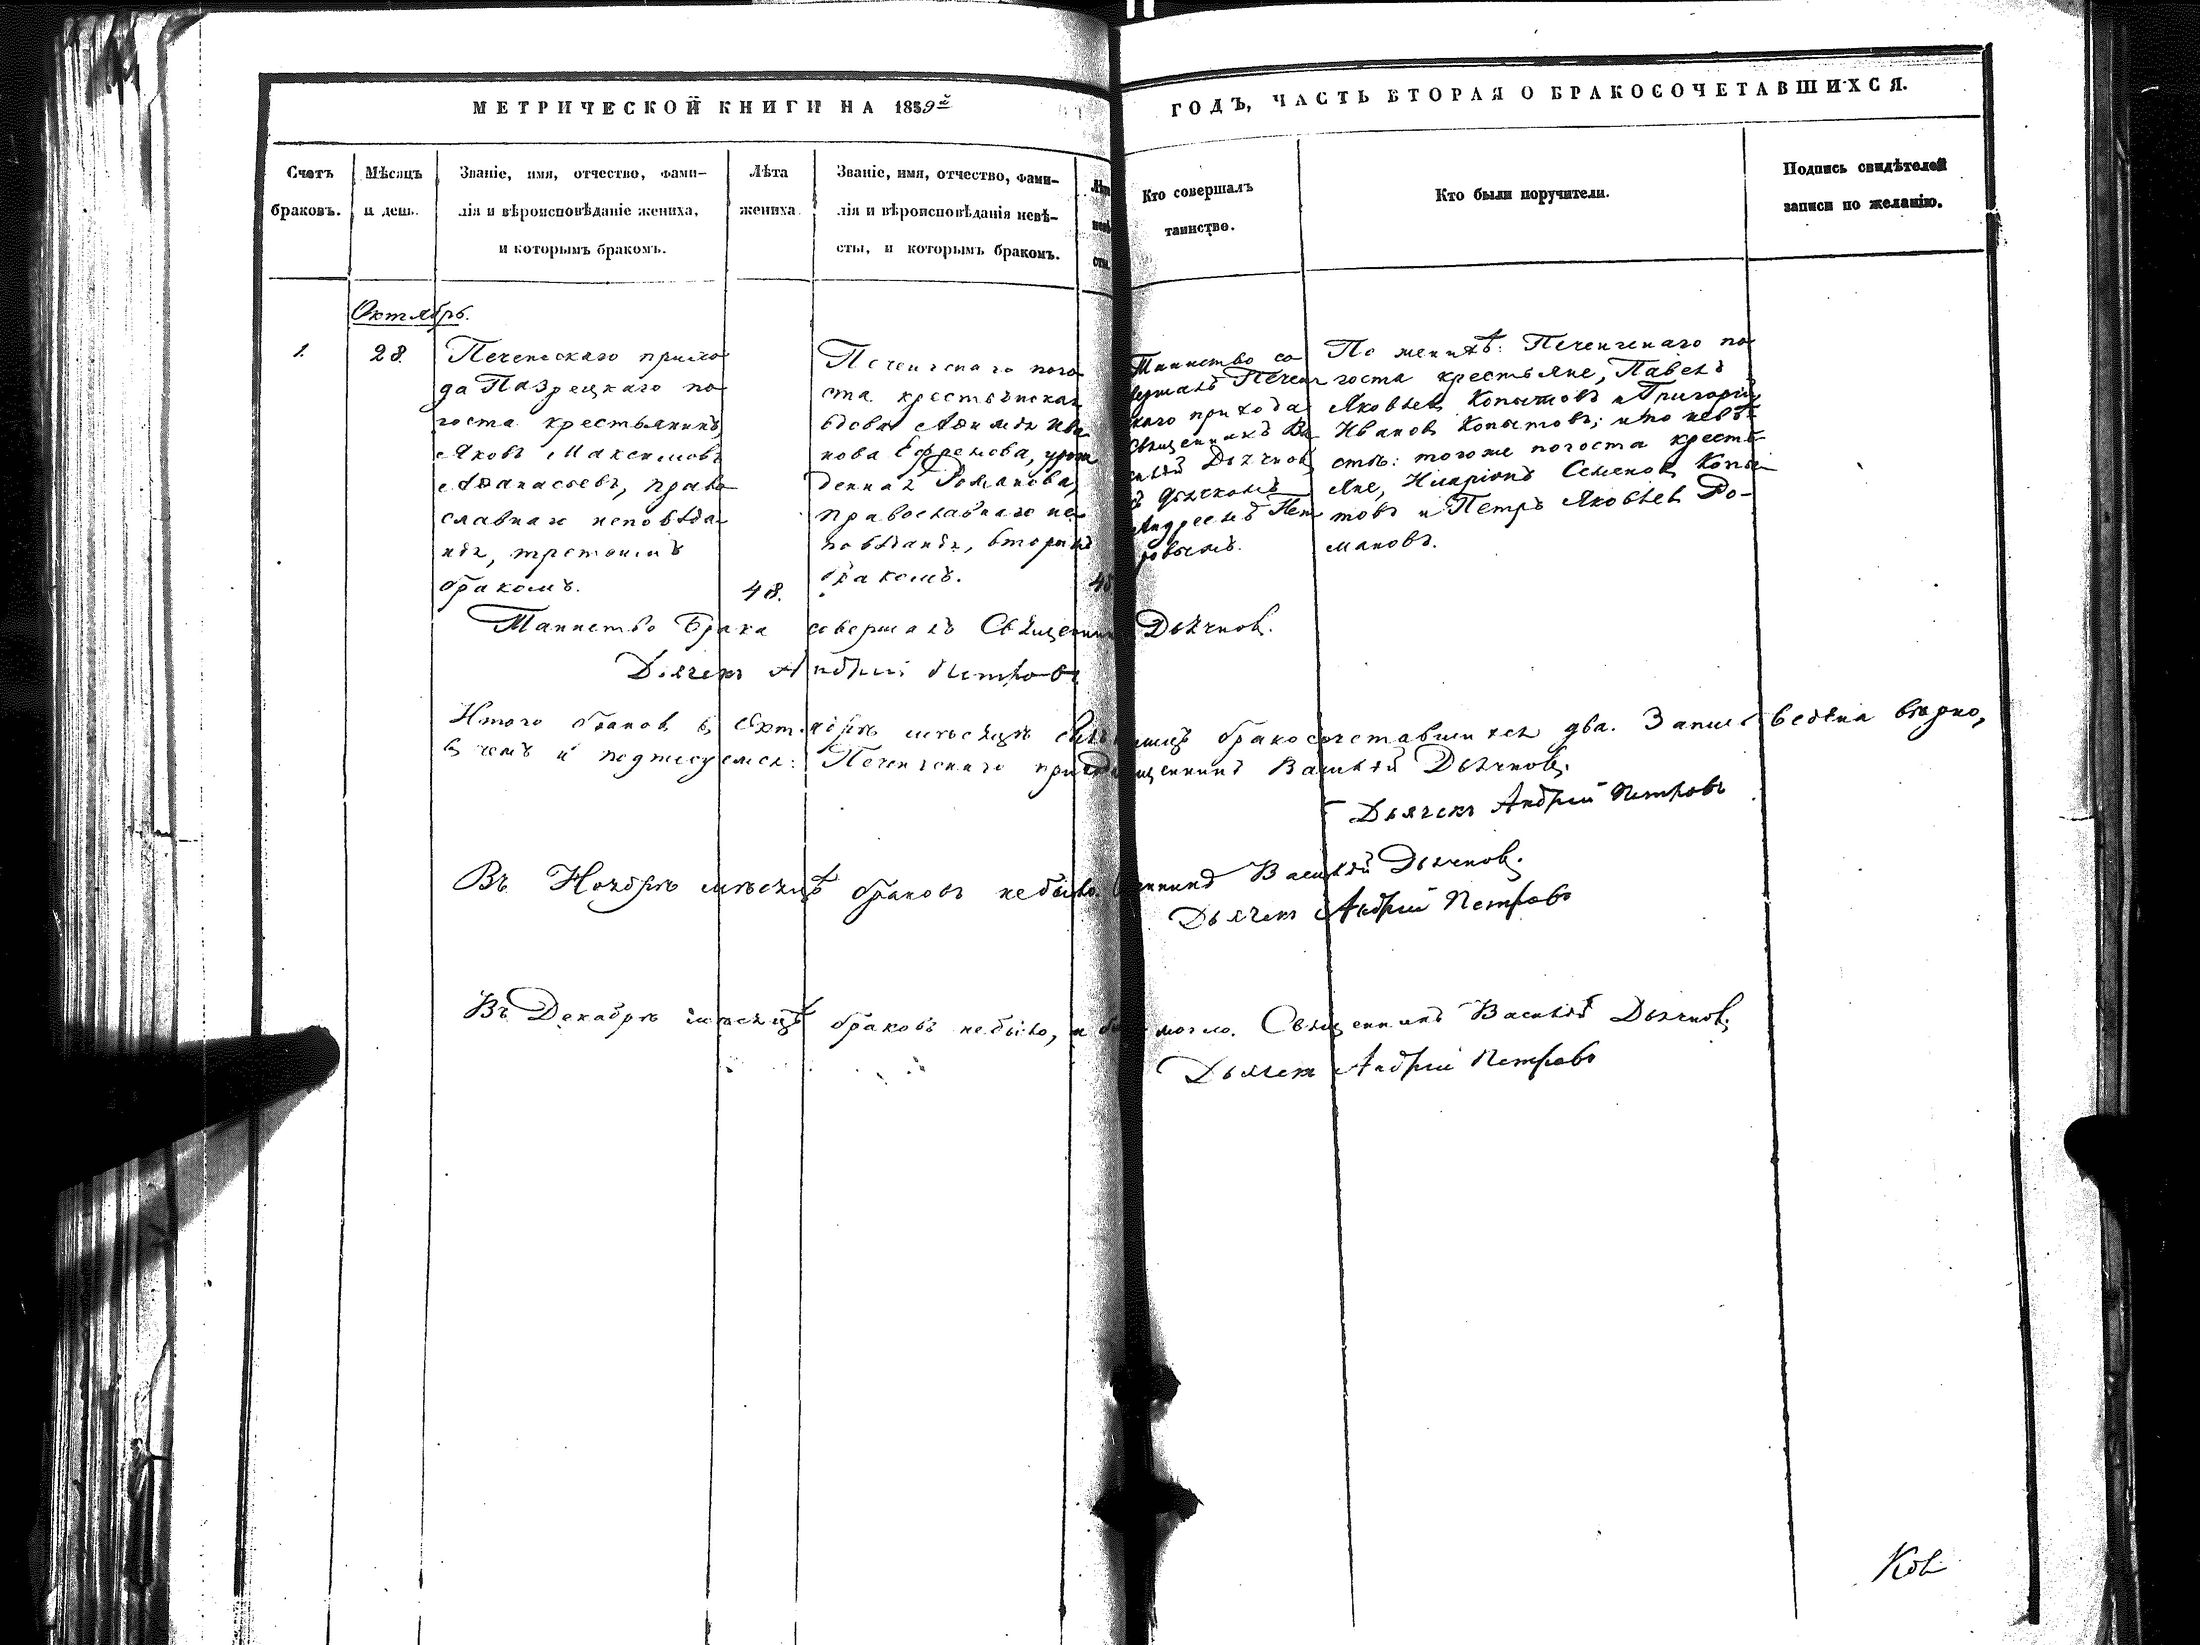 МЕТРИЧЕСКОЙ КНИГИ НА 1859й
ГОДЪ, ЧАСТЬ ВТОРАЯ О БРАКОСОЧЕТАВШИХСЯ.
Счетъ
браковъ.
Мѣсяцъ
и день.
Званіе, имя, отчество, фами-
лія и вѣроисповѣданіе жениха,
и которымъ бракомъ.
Лѣта
жениха.
Званіе, имя, отчество, фами-
лія и вѣроисповѣданія невѣ-
сты, и которымъ бракомъ.
Кто совершалъ
таинство.
Кто были поручители.
Подпись свидѣтелей
записи по желанію.
Октябрь.
1.
28.
Печенгскаго прихо
да Пазрецкаго по
госта крестьянинъ,
Яковъ Максимовъ
Аѳанасьевъ, право
славнаго исповѣда
нія, третьимъ
бракомъ.
48.
Печенгскаго пого
ста крестьянская
вдова Ива
нова Ефремова, урож
денная Романова,
православнаго ис
повѣданія, вторымъ
бракомъ.
Таинство со
вершалъ Печенг
скаго прихода
Священникъ Ва
силій Дьячков
съ дьячкомъ
Андреемъ Пет
ровымъ.
По женихѣ: Печенгскаго по
госта крестьяне, Павелъ
Яковлев Копытовъ и Григорій
Иванов Копытовъ; и по невѣ
стѣ: того же погоста кресть
яне, Иларіонъ Семенов Копы
товъ и Петръ Яковлев Ро-
мановъ.
Таинство Брака совершалъ Священник Дьячков.
Дьячекъ Андрей Петровъ
Итого браков в Октябрѣ мѣсяцѣ бракосочетавшихся два. Запись ведена вѣрно,
в чемъ и подписуемся: Печенгскаго прихода священникъ Василій Дьячков.
Дьячекъ Андрей Петровъ
Въ Ноябрѣ мѣсяцѣ браковъ не было. Священникъ Василій Дьячков.
Дьячекъ Андрей Петровъ
Въ Декабрѣ мѣсяцѣ браковъ не было, и быть не могло. Священникъ Василій Дьячков.
Дьячекъ Андрей Петровъ